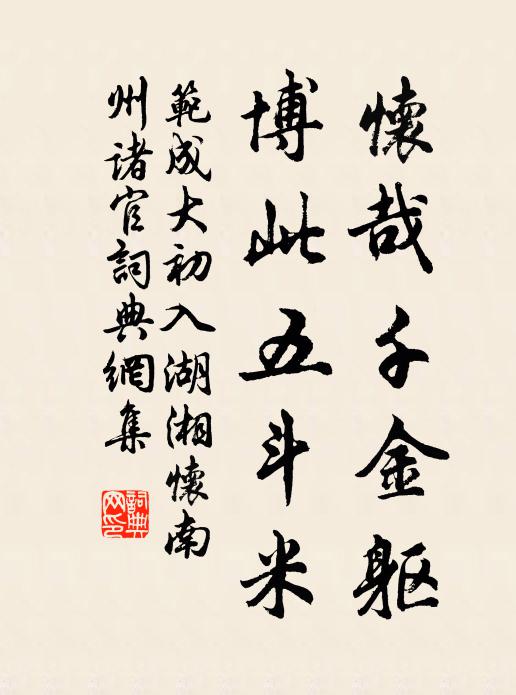 懷哉千金軀
博此五斗米
範成大初入湖湘懷南
州諸官詞典網集
詞典網印